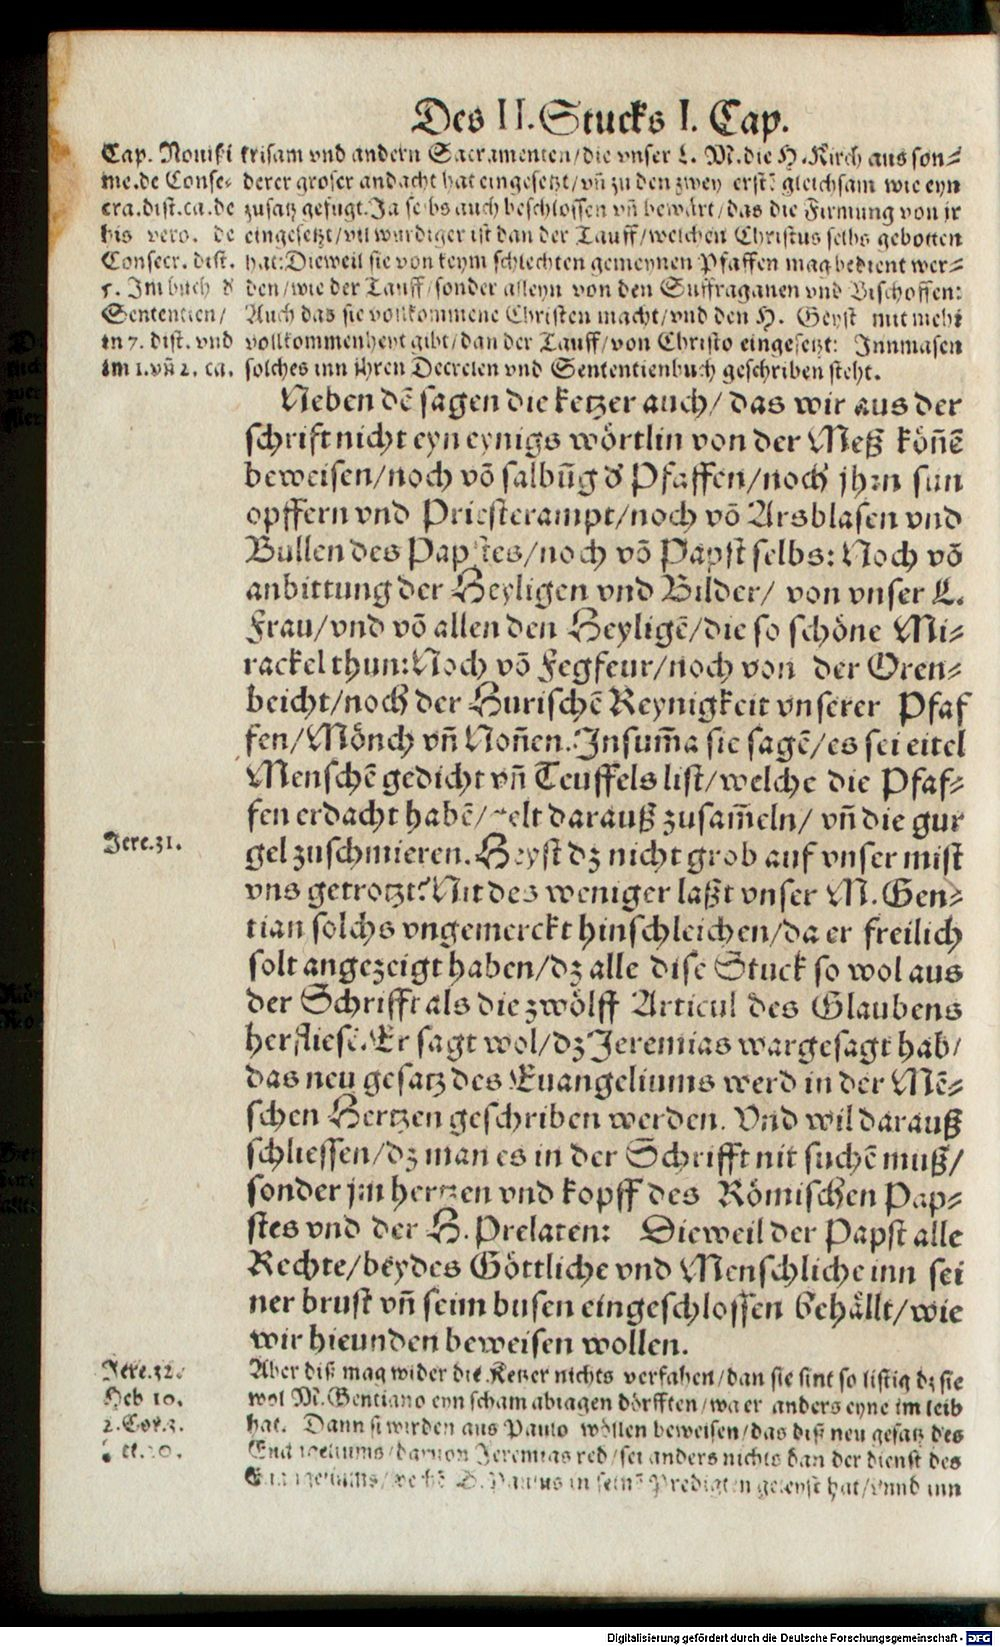 Des II. Stucks I. Cap.
Cap. Nouißi
me.de Conse-
cra.dist.ca.de
his vero. de
Consecr. dist.
5. Im buch d̕
Sententien/
in 7. dist. vnd
im 1. vñ 2. ca.
krisam vnd andern Sacramenten/die vnser L. M. die H. Kirch aus son-
derer groser andacht hat eingesetzt/vñ zu den zwey erstē gleichsam wie eyn
zusatz gefugt. Ja selbs auch beschlossen vñ bewärt/das die Firmung von jr
eingesetzt/vil würdiger ist dan der Tauff/welchen Christus selbs gebotten
hat: Dieweil sie von keym schlechten gemeynen Pfaffen mag bedient wer-
den/wie der Tauff/sonder alleyn von den Suffraganen vnd Bischoffen:
Auch das sie vollkommene Christen macht/vnd den H. Geyst mit mehr
vollkommenheyt gibt/dan der Tauff/von Christo eingesetzt: Innmasen
solches inn jhren Decreten vnd Sententienbuch geschriben steht.
Neben dē sagen die ketzer auch/ das wir aus der
schrift nicht eyn eynigs wörtlin von der Meß köñē
beweisen/noch vō salbūg d̕ Pfaffen/noch jhrn sün
opffern vnd Priesterampt/noch vō Arsblasen vnd
Bullen des Papstes/noch vō Papst selbs: Noch vō
anbittung der Heyligen vnd Bilder/ von vnser L.
Frau/vnd vō allen den Heyligē/die so schöne Mi-
rackel thun: Noch vō Fegfeur/noch von der Oren-
beicht/noch der Hurischē Reynigkeit vnserer Pfaf
fen/Mönch vñ Noñen. Insum̄a sie sagē/es sei eitel
Menschē gedicht vñ Teuffels list/welche die Pfaf-
fen erdacht habē/gelt darauß zusam̄eln/ vñ die gur
gel zuschmieren. Heyst dz nicht grob auf vnser mist
vns getrotzt? Nit des weniger laßt vnser M. Gen-
tian solchs vngemerckt hinschleichen/da er freilich
solt angezeigt haben/dz alle dise Stuck so wol aus
der Schrifft als die zwölff Articul des Glaubens
herfliesē. Er sagt wol/dz Jeremias wargesagt hab/
das neu gesatz des Euangeliums werd in der Mē-
schen Hertzen geschriben werden. Vnd wil darauß
schliessen/dz man es in der Schrifft nit suchē muß/
sonder jm hertzen vnd kopff des Römischen Pap-
stes vnd der H. Prelaten: Dieweil der Papst alle
Rechte/beydes Göttliche vnd Menschliche inn sei
ner brust vñ seim busen eingeschlossen behällt/wie
wir hieunden beweisen wollen.
Jere.31.
Jere.32.
Heb 10.
2.Cor.3.
Aber diß mag wider die Ketzer nichts verfahen/dan sie sint so listig dz sie
wol M. Gentiano eyn scham abiagen dörfften/wa er anders eyne im leib
hat. Dann si würden aus Paulo wöllen beweisen/das diß neu gesatz des
Euangeliums/daruon Jeremias red/sei anders nichts dan der dienst des
Euangeliums/welchē S. Paulus in seinē Predigten geleyst hat/vnnd inn
Digitalisierung gefördert durch die Deutsche Forschungsgemeinschaft - DFG